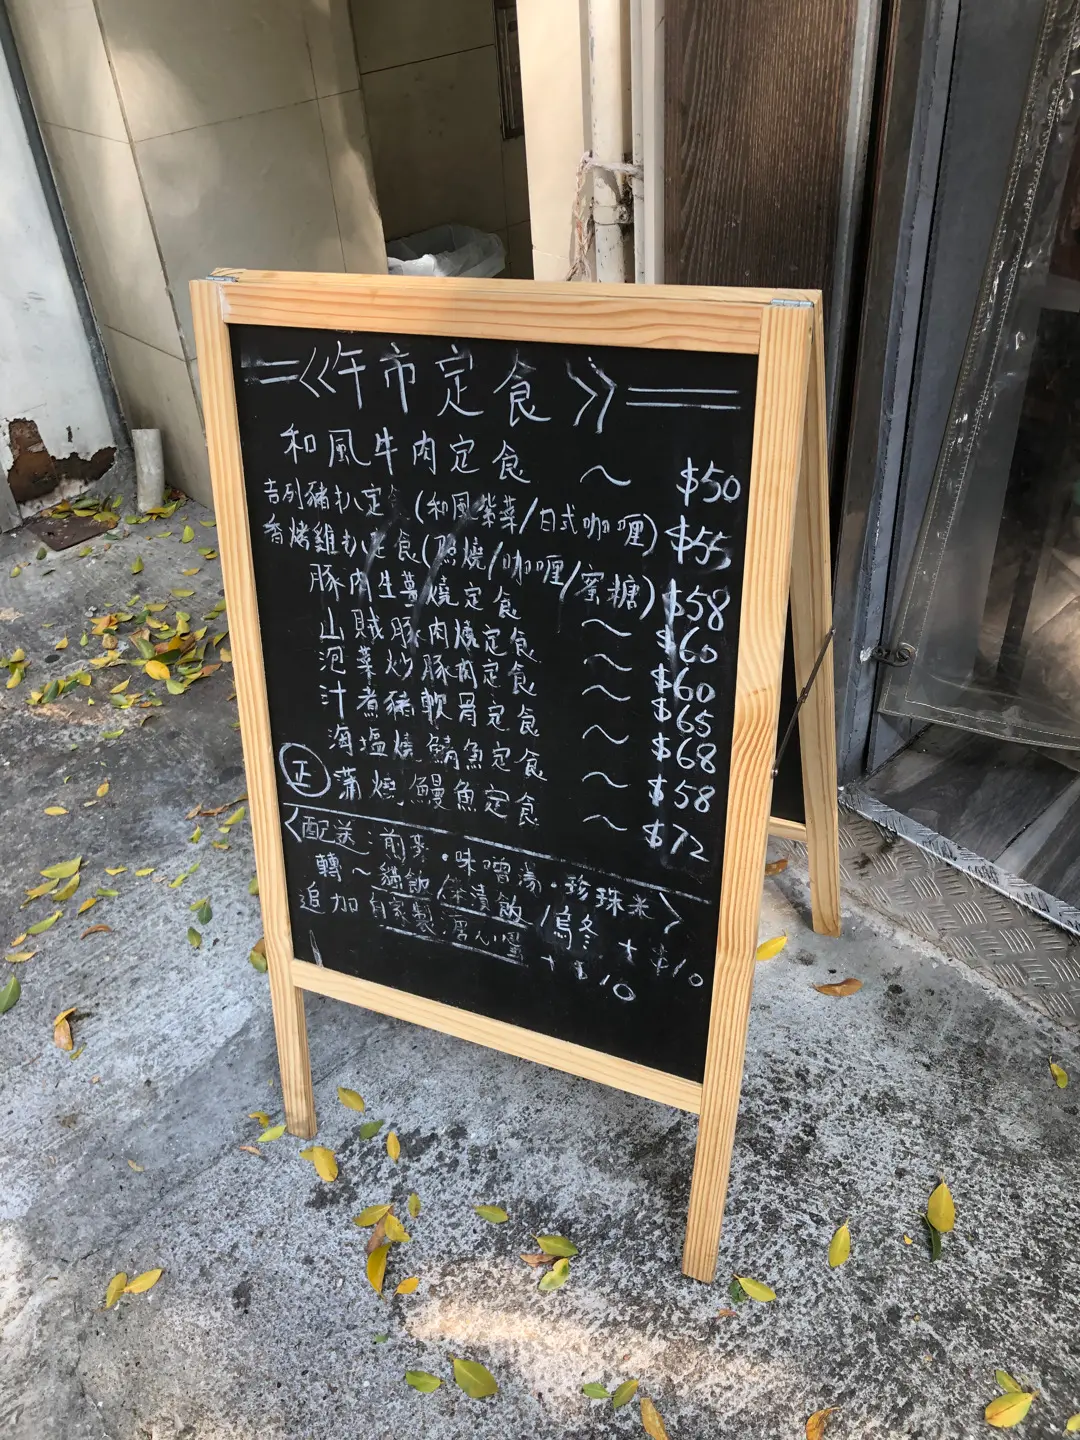 =《午市定食》=
和風牛肉定食 ~ $50
吉列豬扒定食(和風紫菜/日式咖喱) $55
香烤雞扒定食(照燒/咖喱/蜜糖) $58
豚肉生薑燒定食 ~ $60
山賊豚肉燒定食 ~ $60
泡菜炒豚肉定食 ~ $65
汁煮豬軟骨定食 ~ $68
海塩燒鯖魚定食 ~ $58
正 蒲燒鰻魚定食 ~ $72
〈配送:前菜·味噌湯·珍珠米〉
轉~貓飯/茶漬飯/烏冬 + $10
追加 自家製溏心蛋 + $10